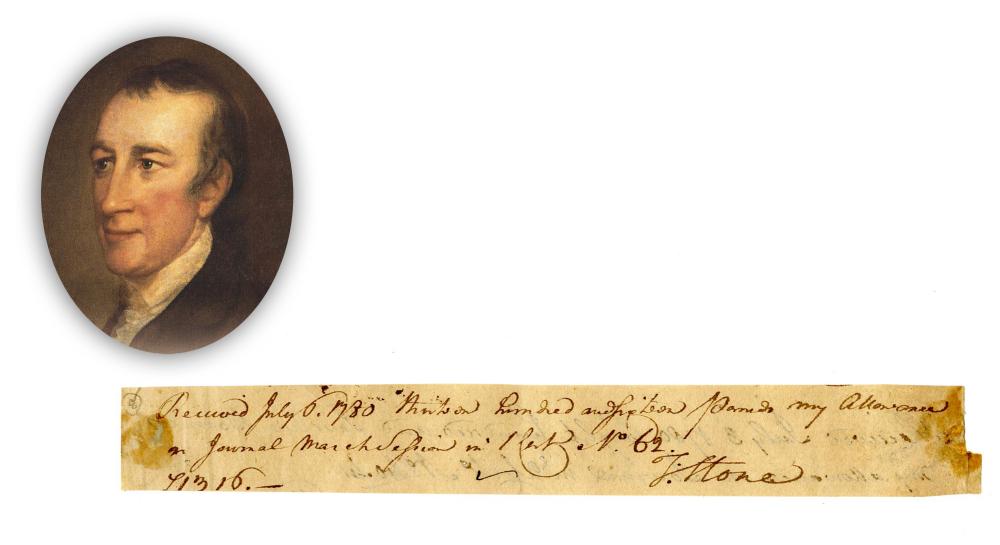 Received July 6. 1780 thirteen hundred and sixteen Pounds my Allowance
on Journal March Session in Cert No. 62
1316.—
T: Stone